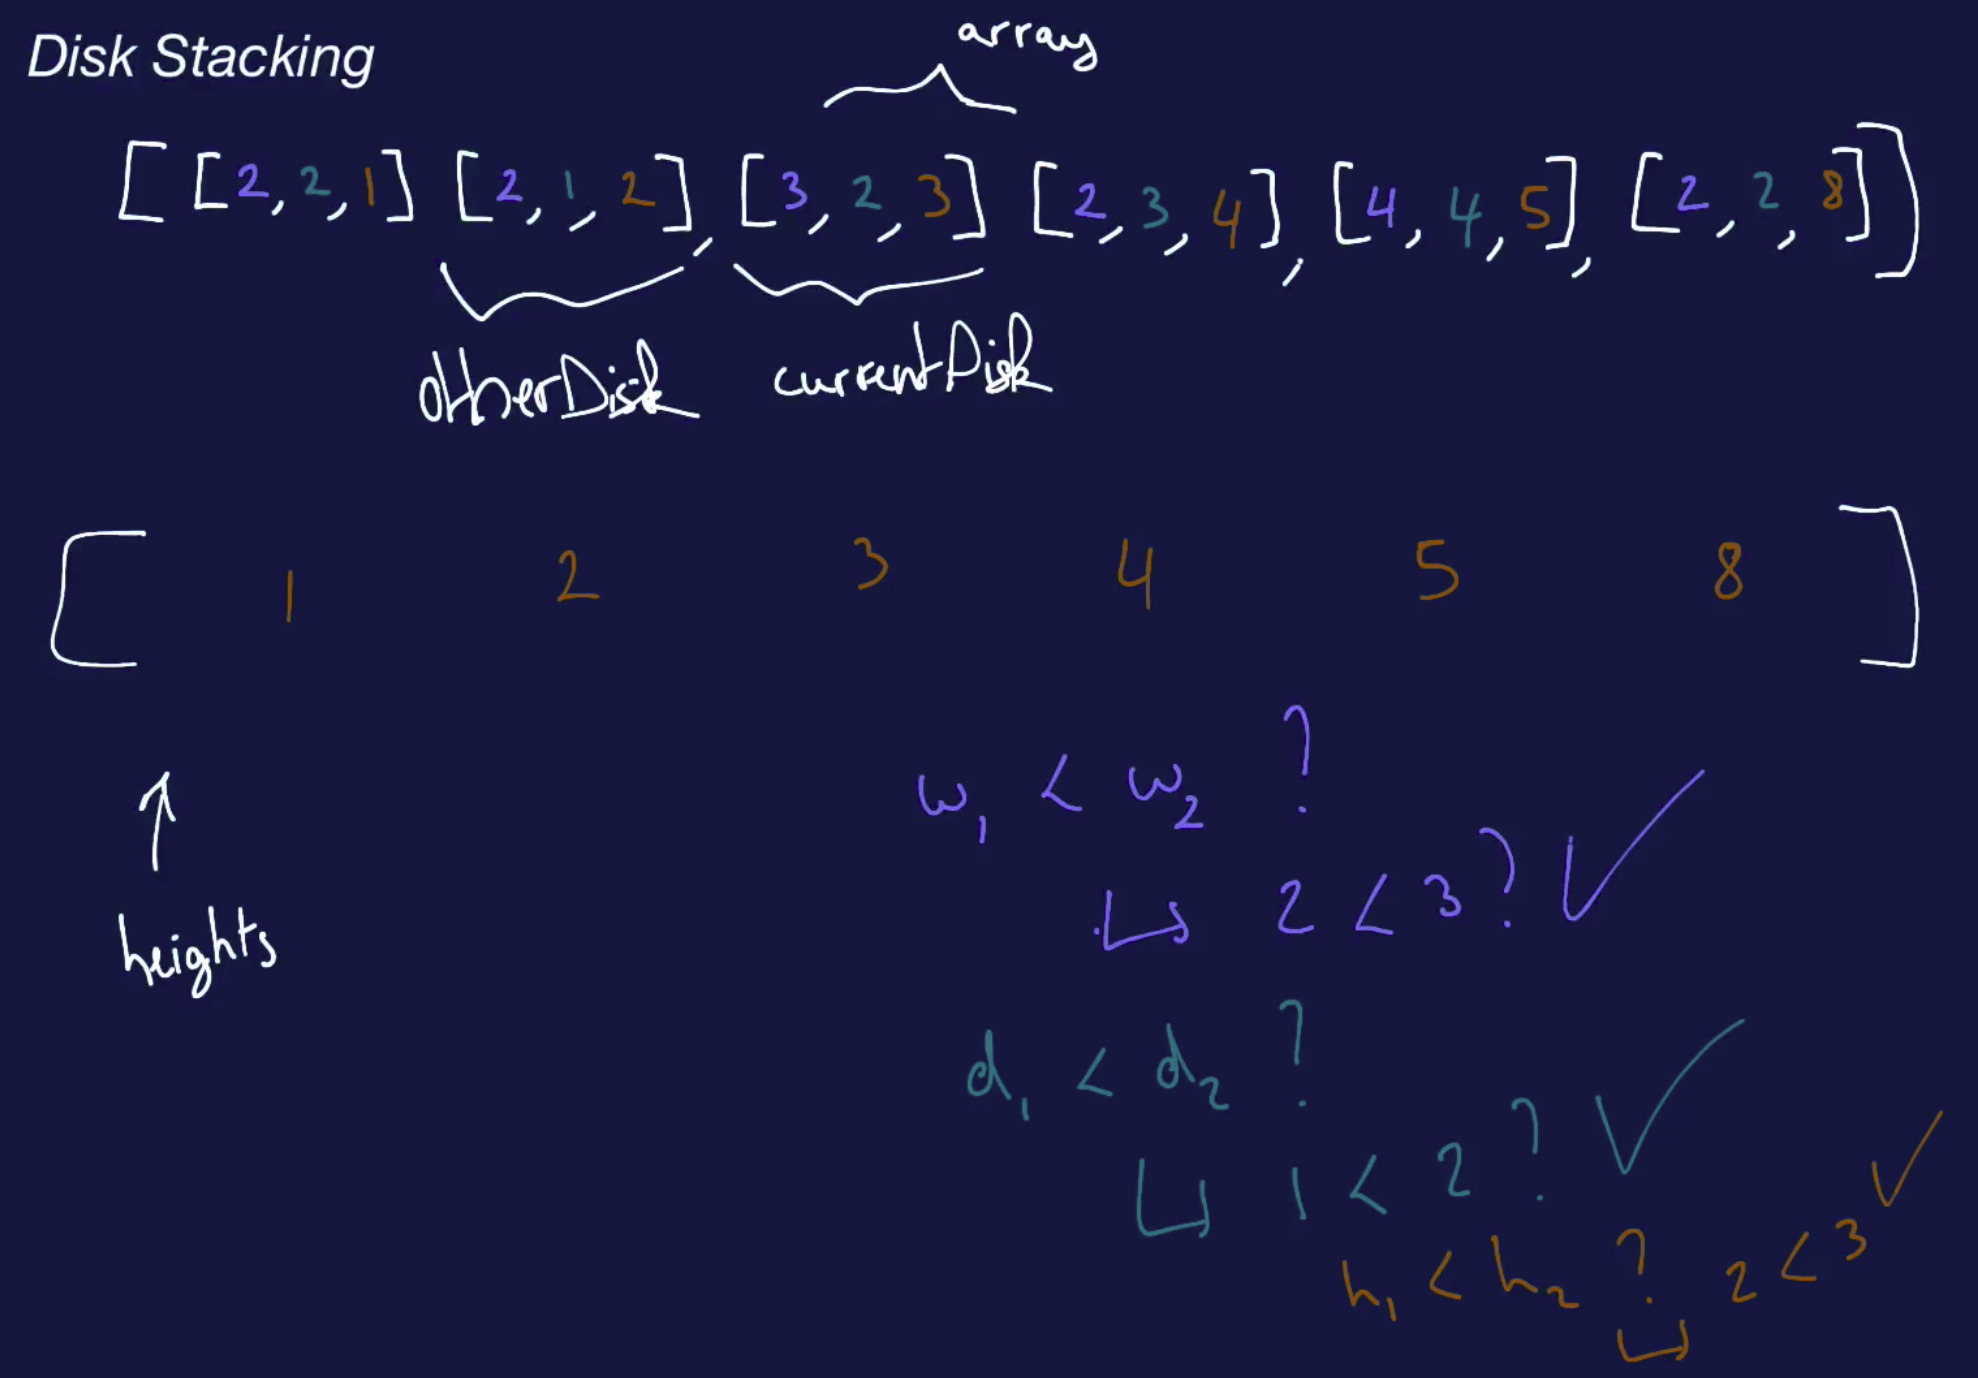 Disk Stacking
array
[ [2, 2, 1] [2, 1, 2], [3, 2, 3] [2, 3, 4], [4, 4, 5], [2, 2, 8] ]
otherDisk currentDisk
[ 1 2 3 4 5 8 ]
w₁ < w₂ ?
↳ 2 < 3 ? ✓
heights
d₁ < d₂ ?
↳ 1 < 2 ? ✓
h₁ < h₂ ? ↳ 2 < 3 ✓